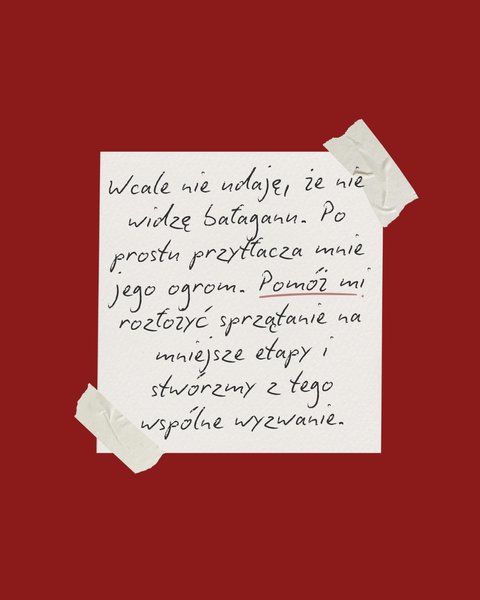 Wcale nie udaję, że nie
widzę bałaganu. Po
prostu przytłacza mnie
jego ogrom. Pomóż mi
rozłożyć sprzątanie na
mniejsze etapy i
stwórzmy z tego
wspólne wyzwanie.